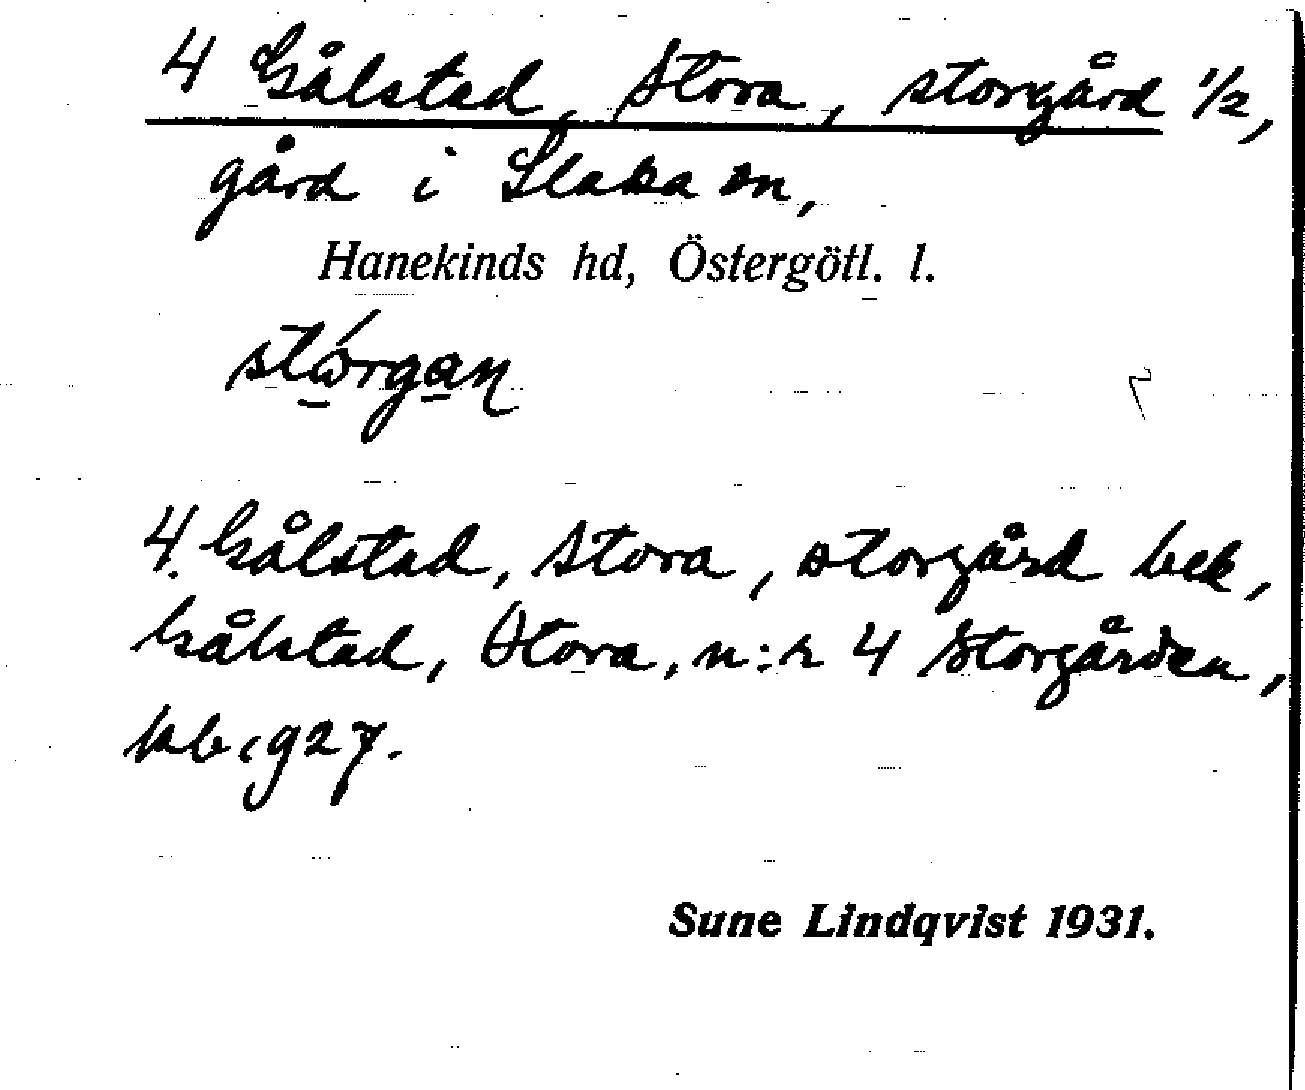 4 Gålstad, Stora, storgård 1/2,
gård i Slaka sn,
Hanekinds hd, Östergötl. l.
stórgan
4. Gålstad, Stora, storgård bek,
Gålstad, Stora, n:r 4 Storgården,
kb 1927.
Sune Lindqvist 1931.